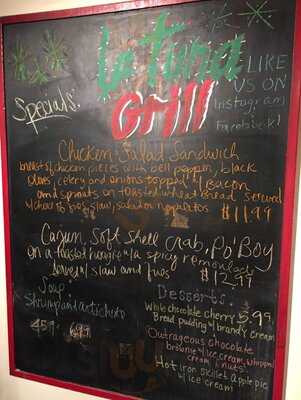 La Tuna
Grill
LIKE
US ON
Instagram
Facebook!
Specials:
Chicken Salad Sandwich
breast of chicken pieces with bell pepper, black
olives, celery and onions topped w/ bacon
and sprouts on toasted wheat bread served
w/ choice of fries, slaw, salad or
$11.99
Cajun, Soft Shell Crab, Po'Boy
on a toasted hoagie w/ a spicy remoulade
Served w/ slaw and fries
$12.99
Soup
Shrimp and artichoke
4.59
6.99
Desserts:
White chocolate cherry 5.99
Bread pudding w/ brandy cream
Outrageous chocolate
brownie w/ ice cream, whipped
cream & nuts!
Hot iron skillet apple pie
w/ ice cream